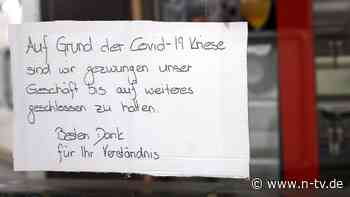 Auf Grund der Covid-19 Kriese
sind wir gezwungen unser
Geschäft bis auf weiteres
geschlossen zu halten.
Besten Dank
für Ihr Verständnis
www.n-tv.de